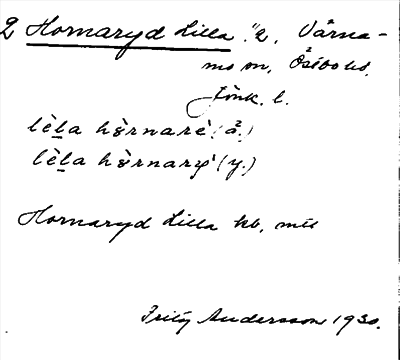 2 Hornaryd Lilla "2, Värna-
mo sn, Östbo hd.
Jönk. l.
lèla hǝ̀rnare` (ä.)
lèla hǝ̀rnary` (y.)
Hornaryd Lilla kb,
Fritz Andersson 1930.